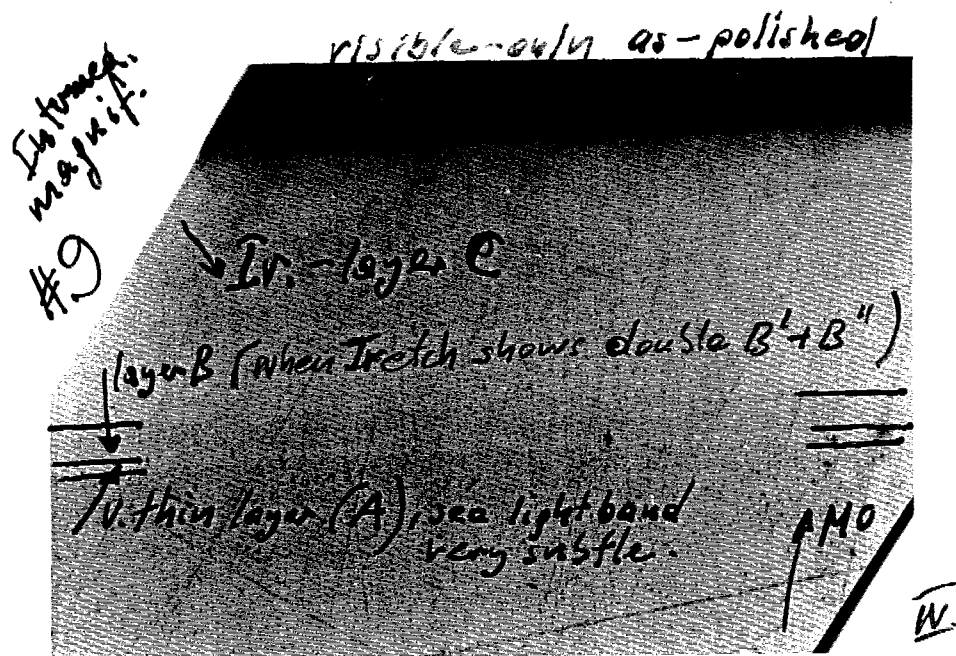 visible-only as-polished
Intermed.
magnif.
#9
Ir.-layer C
layer B (when I etch shows double B'+B")
V. thin layer (A), see light band
very subtle.
MO
IV.